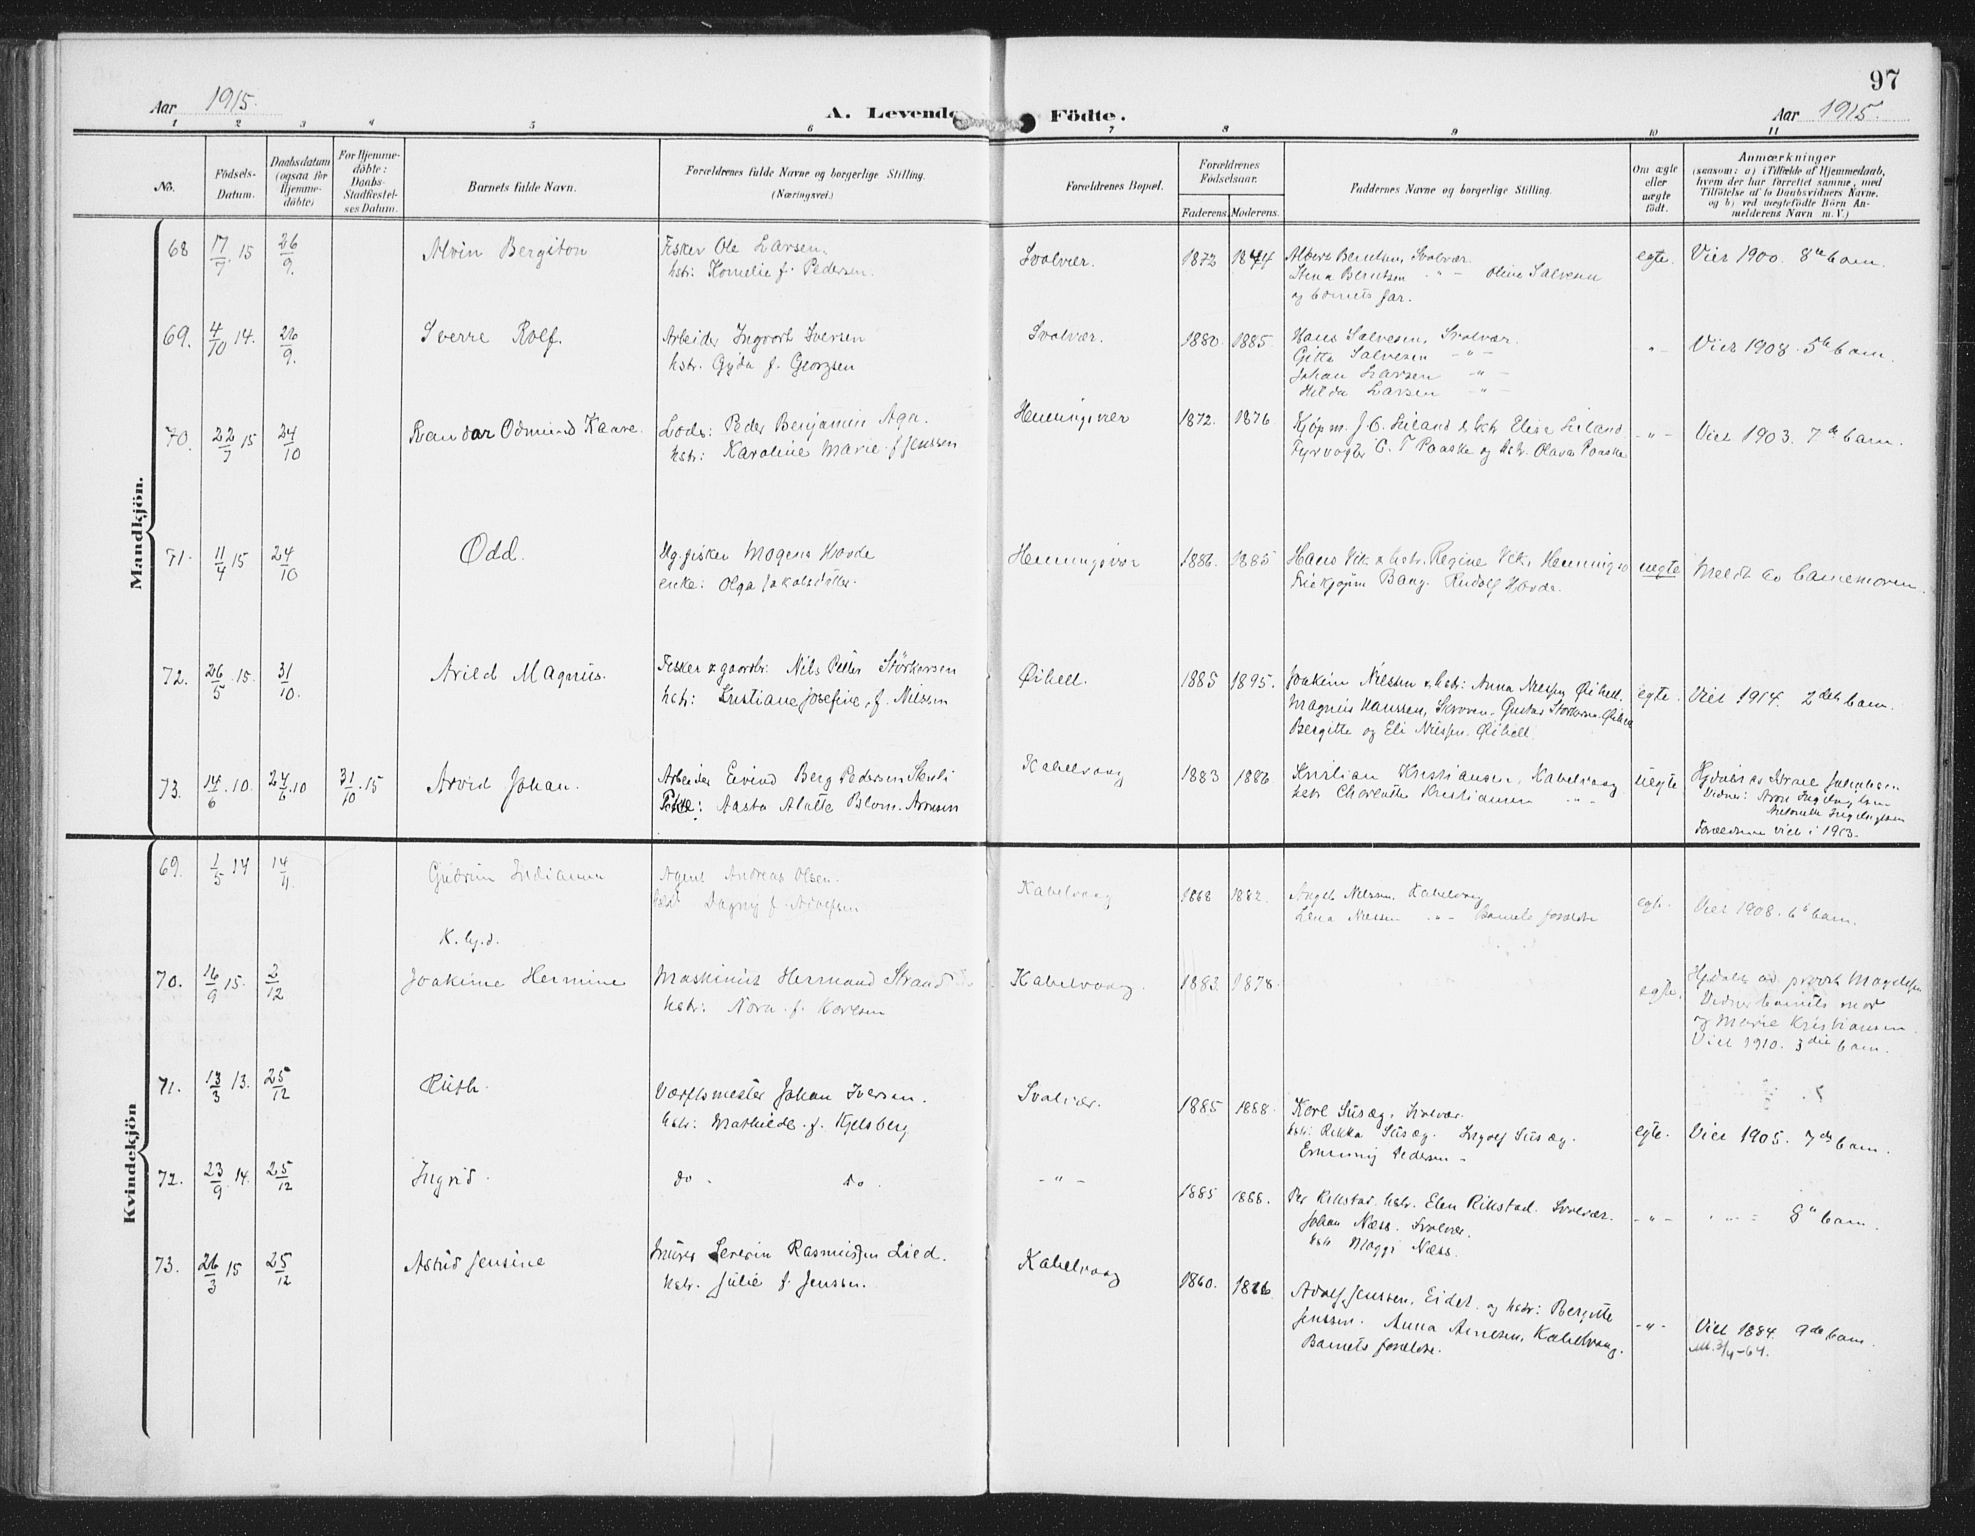 97
Aar 1915.
A. Levende Födte.
Aar 1915.
1 2 3 4 5 6 7 8 9 10 11
No.
Födsels-
Datum.
Daabsdatum
(ogsaa for
Hjemme-
döbte)
For Hjemme-
döbte:
Daabs-
Stadfestel-
ses Datum.
Barnets fulde Navn.
Forældrenes fulde Navne og borgerlige Stilling.
(Næringsvei.)
Forældrenes Bopæl.
Forældrenes
Födselsaar.
Faderens. Moderens.
Faddernes Navne og borgerlige Stilling.
Om ægte
eller
uægte
födt.
Anmærkninger
(saasom: a) i Tilfælde af Hjemmedaab,
hvem der har forrettet samme, med
Tilföielse af to Daabsvidners Navne,
og b) ved uægtefödte Börn An-
melderens Navn m. V.)
Mandkjön.
68 17/7 15 26/9. Alvin Bergiton
Fisker Ole Larsen.
hstr: Kornelie f. Pedersen.
Svolvær. 1872 1874
Albert Berntsen, Svolvær
Stina Berntsen " - Oline Salvesen
og barnets far.
egte. Viet 1900. 8de barn.
69. 4/10 14. 26/9. Sverre Rolf.
Arbeider Ingvart Iversen
hstr. Gyda f. Georgsen
Svolvær. 1880. 1885.
Hans Salvesen, Svolvær.
Gitta Salvesen -"-
Johan Larsen -"-
Hilda Larsen -"-
-"- Viet 1908. 5te barn.
70. 22/7 15 24/10 Randar Odmund Kaare.
Lods: Peder Benjamin Aga.
hstr: Karoline Marie f. Jenssen
Henningsvær 1872. 1876
Kjøpm. J. C. Leiland & hstr Elise Leiland
Fyrvogter C. T Paaske og hstr. Olava Paaske
-"- Viet 1903. 7de barn.
71. 11/4 15 24/10 Odd.
Ug. fisker Mogens Hovde
enke: Olga Jakobsdatter.
Henningsvær 1886. 1885
Hans Vik & hstr. Regine Vik, Henningsv
Bang. Rudolf Hovde.
uegte Meldt av barnemoren.
72. 26/5 15. 31/10. Arild Magnus.
Fisker & gaardbr: Nils Petter Størkersen
hstr: Kristiane Josefine, f. Nilssen
Øihell. 1885 1895.
Joakim Nilssen & hstr: Anna Nilssen Øihell.
Magnus Hanssen, Skroven, Gustav Størkersen Øihell
Bergitte og Eli Nilssen. Øihell.
egte. Viet 1914. 2det barn.
73. 14/6 10. 24/6 10 31/10 15 Arvid Johan.
Arbeider Eivind Berg Pedersen
Pike: Aasta Alette Blom. Arntsen
Kabelvaag 1883 1886
Kristian Kristiansen, Kabelvaag
hstr Charlotte Kristiansen "
uegte
Forældrene viet i 1913.
Kvindekjön
69. 1/5 14 14/11. Gudrun
K. hj. d.
Agent Andreas Olsen.
hstr Dagny f.
Kabelvaag 1868 1882.
Nilssen, Kabelvaag
Lina Nilssen -"- Barnets forældre
egte. Viet 1908. 6te barn.
70. 16/9 15. 2/12 Joakime Hermine
Maskinist Hermand Strand
hstr: Nora f. Karlsen
Kabelvaag. 1883. 1878.
egte. Hjdøbt av provst
Vidner barnets mor
og Marie Kristiansen.
Viet 1910. 3die barn.
71. 13/3 13. 25/12 Ruth.
Værftsmester Johan Iversen.
hstr: Mathilde f. Kjelsberg
Svolvær. 1885 1888.
Karl Susæg, Svolvær.
hstr: Rikka Susæg. Ingolf Susæg.
Pedersen -
egte. Viet 1905. 7de barn.
72. 23/9 14. 25/12 Ingrid.
do. do.
-"- 1885 1888.
Per Rikstad, hstr. Elen Rikstad. Svolvær.
Johan Næss. Svolvær.
hstr Maggi Næss.
-"- " " = 8de barn.
73. 26/3 15 25/12 Astrid Jensine
Murer Severin Rasmussen Lied.
hstr. Julie f. Jenssen.
Kabelvaag 1860. 1866.
Adolf Jenssen, Eidet. og hstr: Bergitte
Jenssen. Anna Arntsen, Kabelvaag.
Barnets forældre.
-"- Viet 1884. 9de barn.